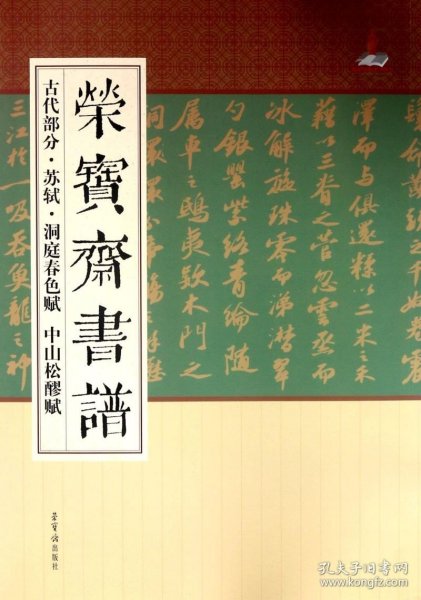 榮寶齋書譜
古代部分·苏轼·洞庭春色赋 中山松醪赋
澤而与俱還糅以二米之禾
藉以三脊之菅忽雲烝而
冰解旋珠零而涕潸翠
勺銀罌紫絡青綸隨
属車之鴟夷款木門之
三江於一吸吞魚龍之神
荣宝斋出版社
孔夫子旧书网
www.kongfz.com